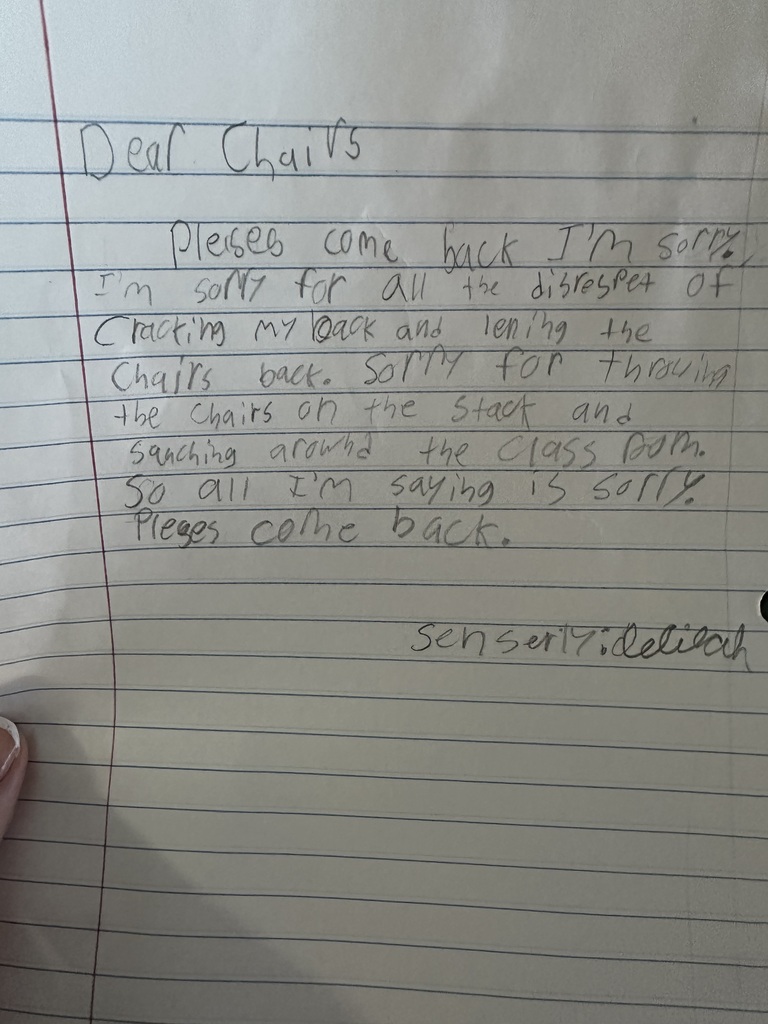 Dear Chairs
Pleises come back I'm sorry.
I'm sorry for all the disrespet of
Cracking my back and lening the
Chairs back. Sorry for throwing
the chairs on the stack and
Sanching arownd the Class Dom.
So all I'm saying is sorry.
Pleges come back.
Senserly: delilah